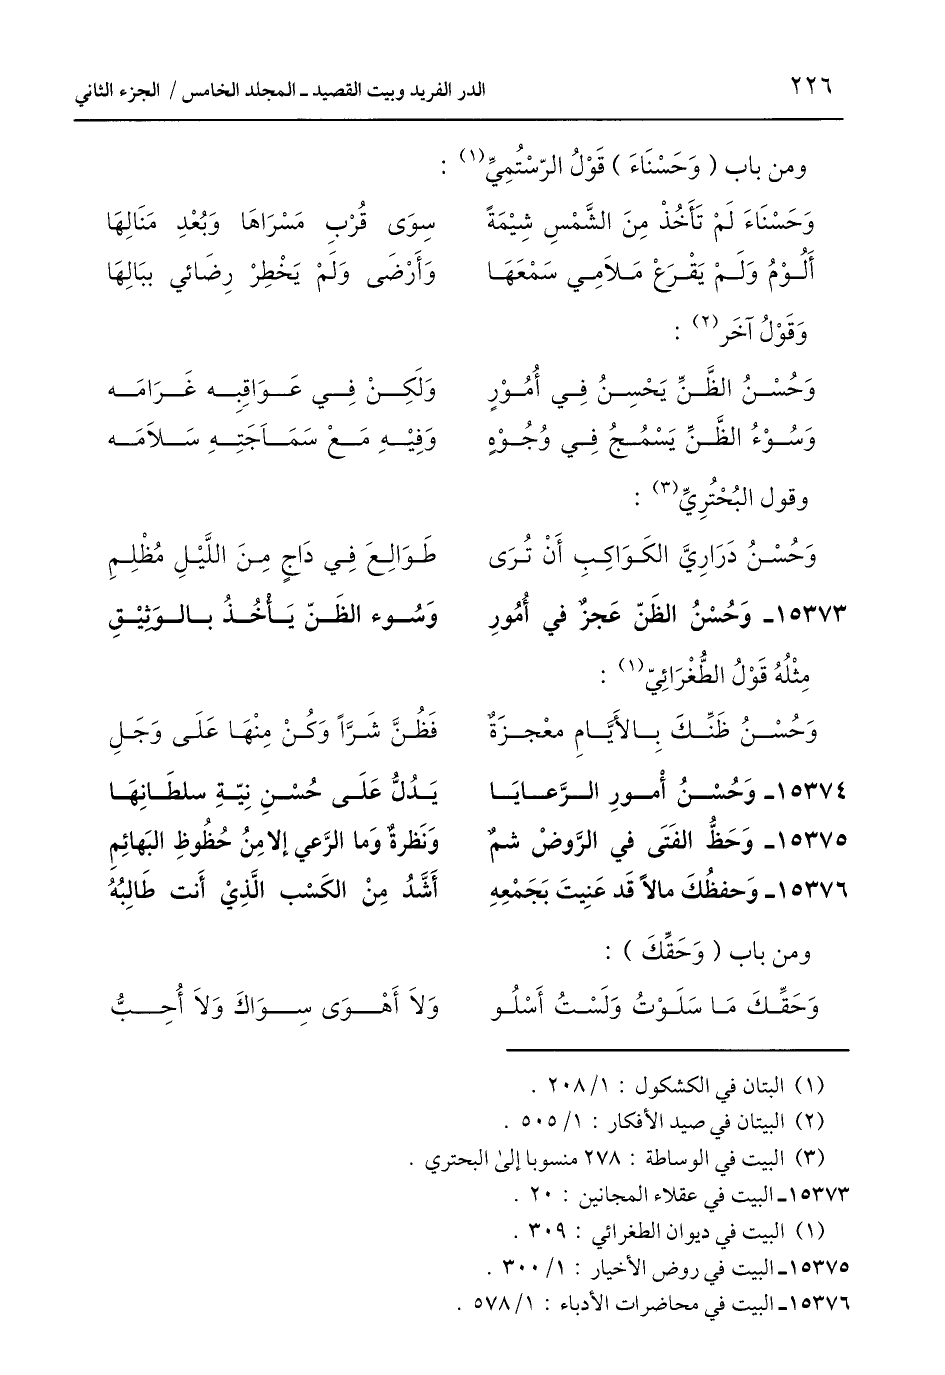 ٢٢٦ الدر الفريد وبيت القصيد ـ المجلد الخامس / الجزء الثاني
ومن باب ( وَحَسْنَاءَ ) قَوْلُ الرّسْتُمِيِّ(١) :
وَحَسْنَاءَ لَمْ تَأْخُذْ مِنَ الشَّمْسِ شِيْمَةً سِوَى قُرْبِ مَسْرَاهَا وَبُعْدِ مَنَالِهَا
أَلُوْمُ وَلَمْ يَقْرَعْ مَلاَمِي سَمْعَهَا وَأَرْضَى وَلَمْ يَخْطِرْ رِضَائي بِبَالِهَا
وَقَوْلُ آخَر(٢) :
وَحُسْنُ الظَّنِّ يَحْسِنُ فِي أُمُوْرٍ وَلَكِنْ فِي عَوَاقِبِه غَرَامَه
وَسُوْءُ الظَّنِّ يَسْمُجُ فِي وُجُوْهٍ وَفِيْهِ مَعْ سَمَاجَتِهِ سَلاَمَه
وقول البُحْتُرِيِّ(٣) :
وَحُسْنُ دَرَارِيَّ الكَوَاكِبِ أَنْ تُرَى طَوَالِعَ فِي دَاجٍ مِنَ اللَّيْلِ مُظْلِمِ
١٥٣٧٣ـ وَحُسْنُ الظَنّ عَجزٌ في أُمُورِ وَسُوء الظَنّ يَأْخُذُ بالوَثِيْقِ
مِثْلُهُ قَوْلُ الطُّغْرَائِيّ(١) :
وَحُسْنُ ظَنِّكَ بِالأَيَّامِ مَعْجزَةٌ فَظُنَّ شَرَّاً وَكُنْ مِنْهَا عَلَى وَجَلِ
١٥٣٧٤ـ وَحُسْنُ أُمورِ الرَّعايَا يَدُلُّ عَلَى حُسْنِ نِيّةِ سلطَانِهَا
١٥٣٧٥ـ وَحَظُّ الفَتَى في الرَّوضْ شمٌ وَنَظرةٌ وَما الرَّعي إلا مِنُ حُظُوظِ البَهائِمِ
١٥٣٧٦ـ وَحفظُكَ مالاً قَد عَنِيتَ بَجَمْعِهِ أَشَّدُ مِنْ الكَسْب الَّذِيْ أَنت طَالِبُهُ
ومن باب ( وَحَقِّكَ ) :
وَحَقِّكَ مَا سَلَوْتُ وَلَسْتُ أَسْلُو وَلاَ أَهْوَى سِوَاكَ وَلاَ أُحِبُّ
(١) البتان في الكشكول : ١/ ٢٠٨ .
(٢) البيتان في صيد الأفكار : ١/ ٥٠٥ .
(٣) البيت في الوساطة : ٢٧٨ منسوبا إلىٰ البحتري .
١٥٣٧٣ـ البيت في عقلاء المجانين : ٢٠ .
(١) البيت في ديوان الطغرائي : ٣٠٩ .
١٥٣٧٥ـ البيت في روض الأخيار : ١/ ٣٠٠ .
١٥٣٧٦ـ البيت في محاضرات الأدباء : ١/ ٥٧٨ .